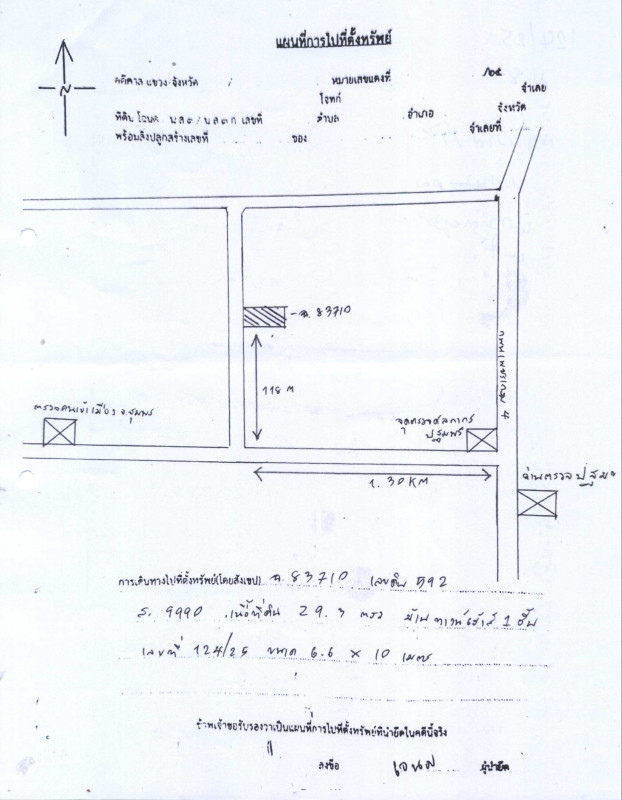 แผนที่การไปที่ตั้งทรัพย์
คดีศาล แขวง จังหวัด หมายเลขแดงที่ /๒๕
โจทก์ จำเลย
ที่ดิน โฉนด น.ส.๓ / น.ส.๓ ก เลขที่ ตำบล อำเภอ จังหวัด
พร้อมสิ่งปลูกสร้างเลขที่ ของ จำเลยที่
N
ฉ. 83710
118 M
ถนนเพชรเกษม 4
ตรวจคนเข้าเมือง จ.ชุมพร
จุดตรวจศุลกากร
ปฐมพร
1.30 KM
ด่านตรวจ
การเดินทางไปที่ตั้งทรัพย์(โดยสังเขป) ฉ. 83710 เลขดิน 592
ส. 9990 เนื้อที่ดิน 29.3 ตรว บ้านทาวน์เฮ้าส์ 1 ชั้น
เลขที่ 124/25 ขนาด 6.6 × 10 เมตร
ข้าพเจ้าขอรับรองว่าเป็นแผนที่การไปที่ตั้งทรัพย์ที่นำยึดในคดีนี้จริง
ลงชื่อ ผู้นำยึด